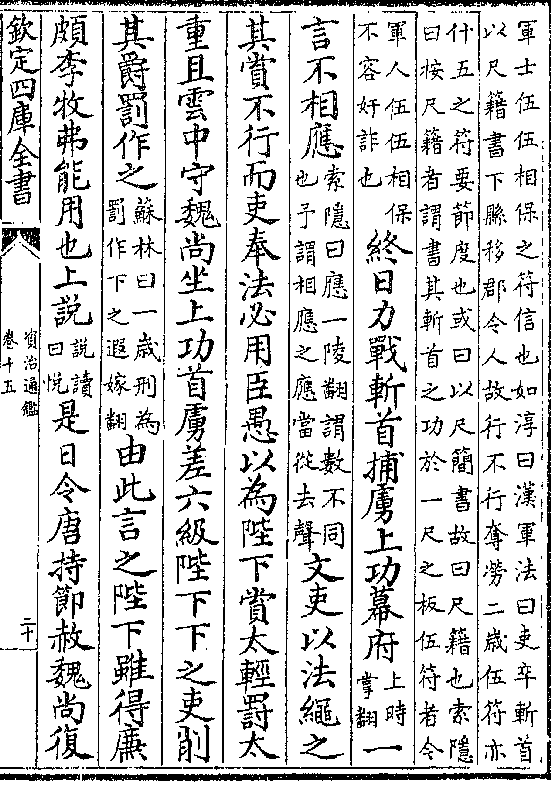 軍士伍伍相保之符信也如淳曰漢軍法曰吏卒斬首
以尺籍書下縣移郡令人故行不行奪勞二歲伍符亦
什五之符要節度也或曰以尺簡書故曰尺籍也索隱
曰按尺籍者謂書其斬首之功於一尺之板伍符者令
軍人伍伍相保
不容奸詐也
終日力戰斬首捕虜上功幕府
上時
掌翻
一
言不相應
索隱曰應一陵翻謂數不同
也予謂相應之應當從去聲
文吏以法繩之
其賞不行而吏奉法必用臣愚以為陛下賞太輕罰太
重且雲中守魏尚坐上功首虜差六級陛下下之吏削
其爵罰作之
蘇林曰一歲刑為
罰作下之遐嫁翻
由此言之陛下雖得廉
頗李牧弗能用也上說
說讀
曰悅
是日令唐持節赦魏尚復
欽定四庫全書
資治通鑑
卷十五
二十